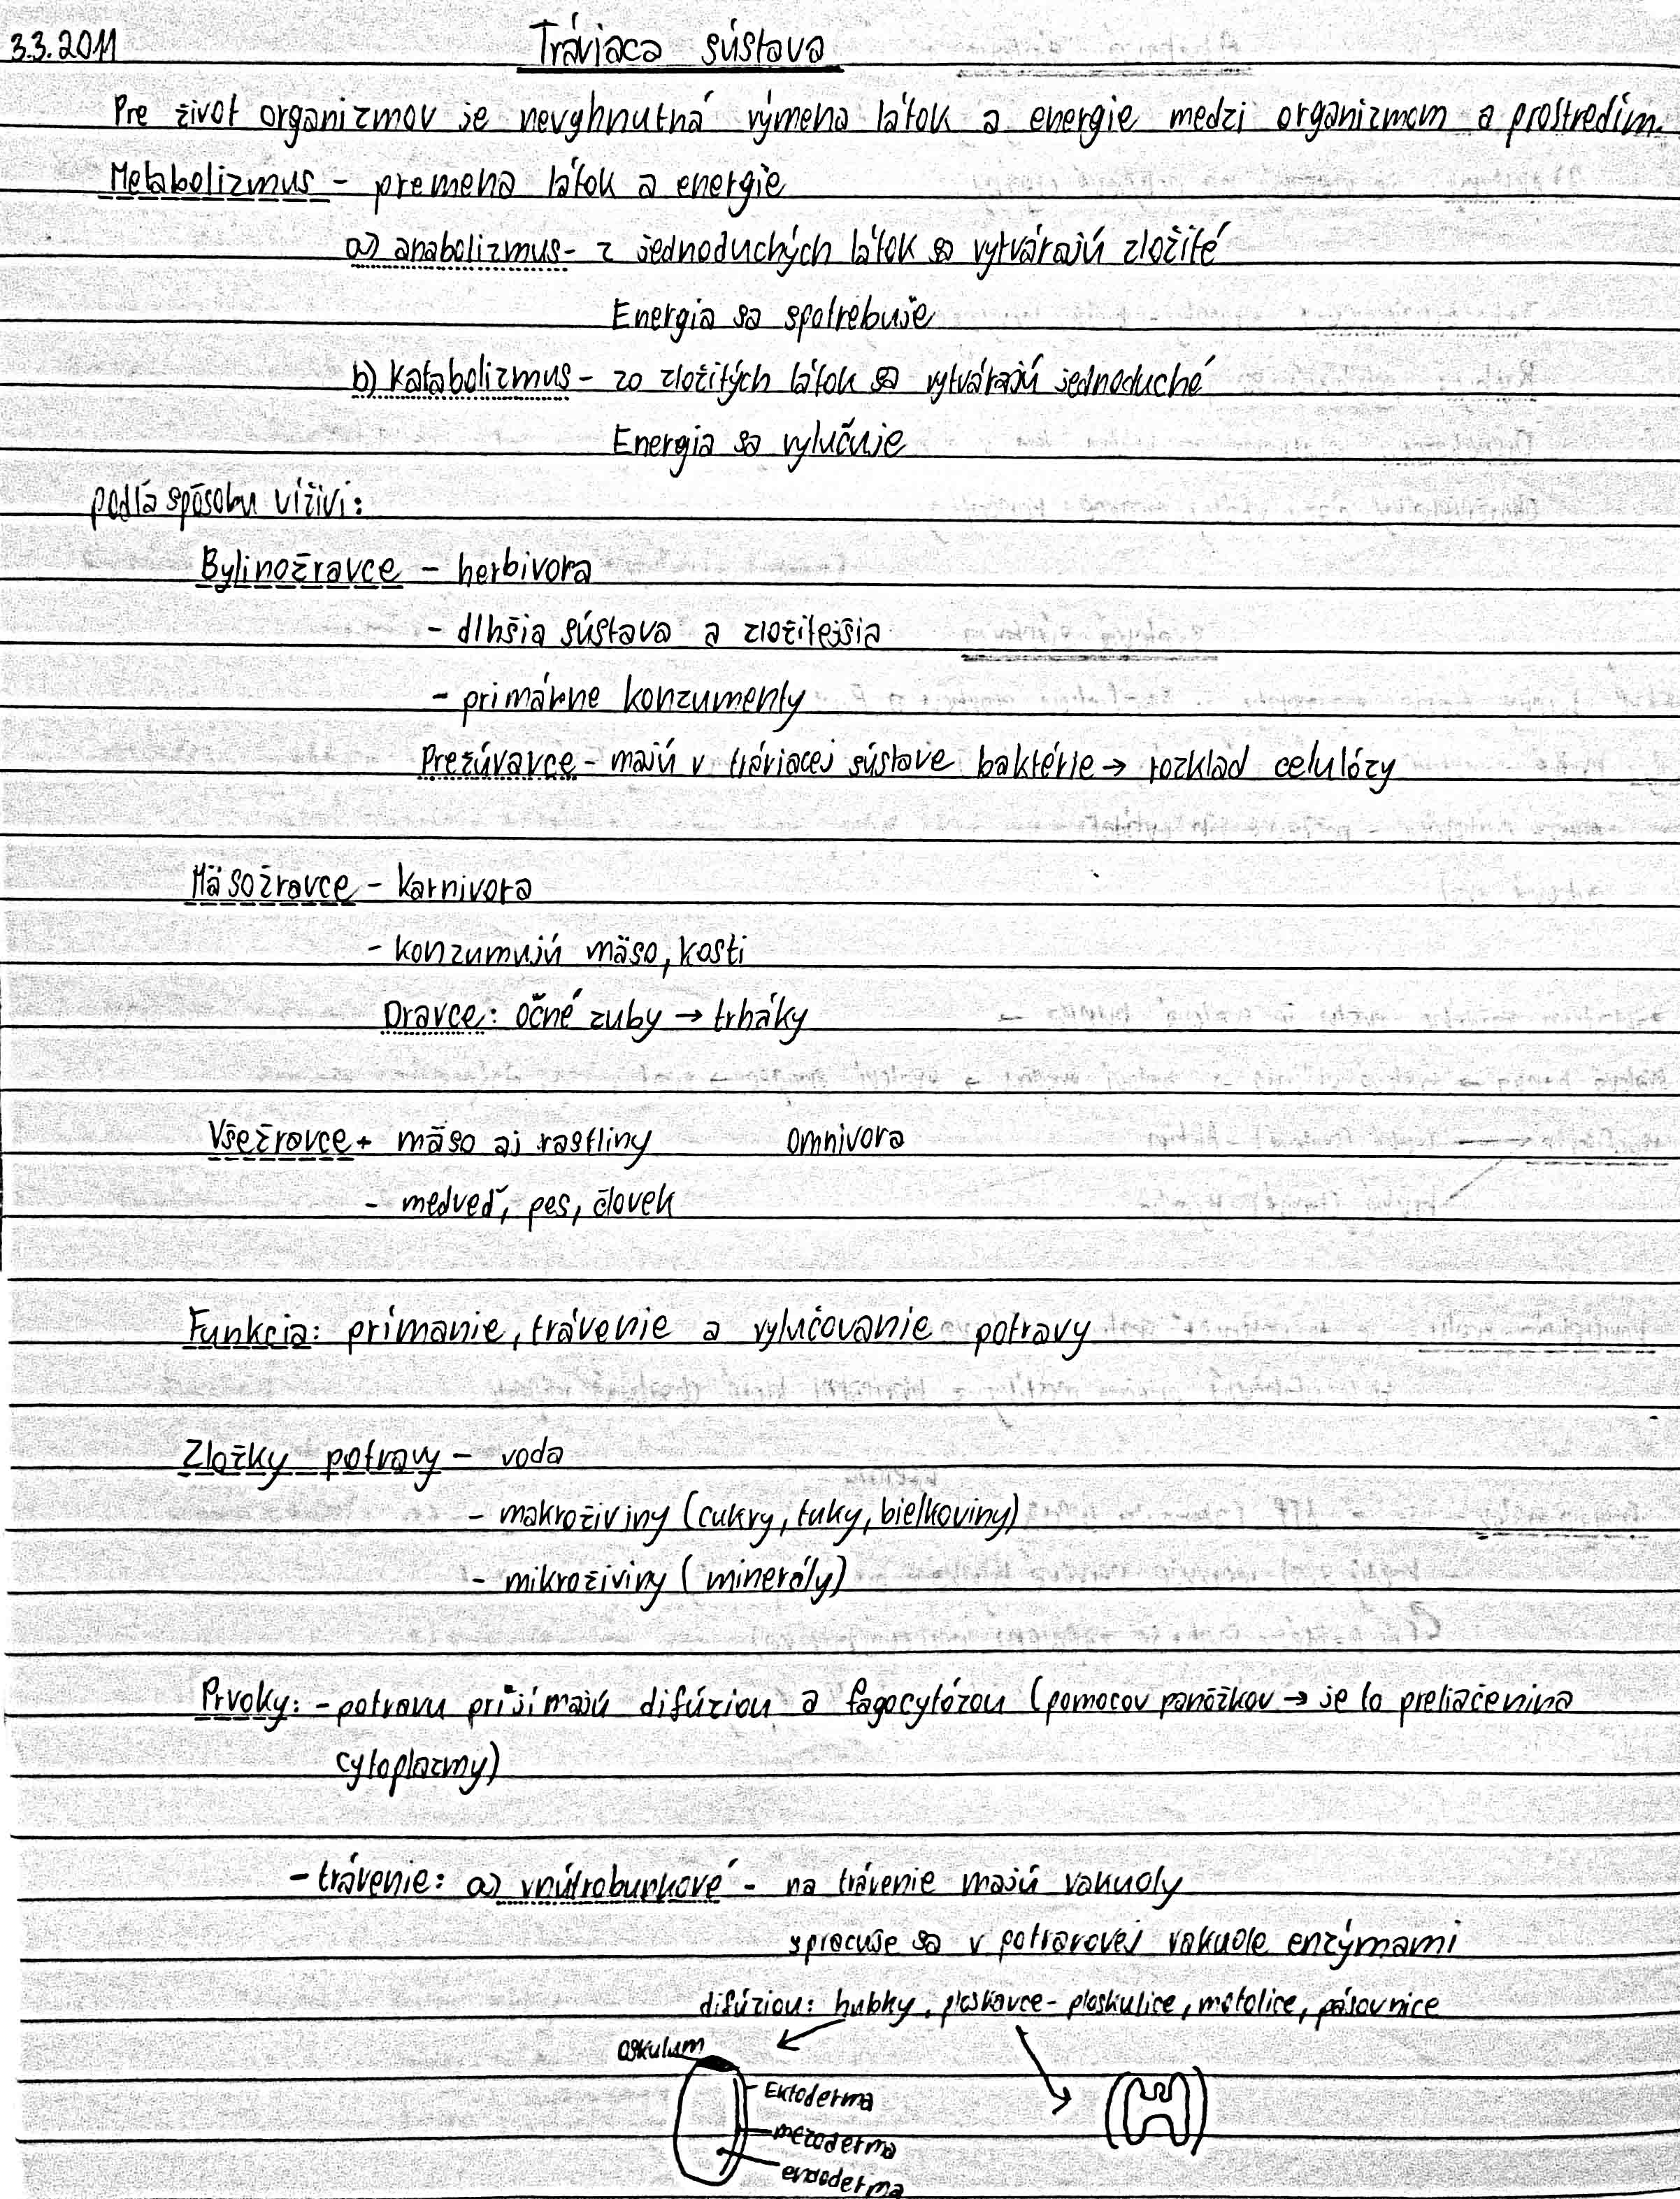 3.3.2011
Tráviaca sústava
Pre život organizmov je nevyhnutná výmena látok a energie medzi organizmom a prostredím.
Metabolizmus - premena látok a energie
a) anabolizmus - z jednoduchých látok sa vytvárajú zložité
Energia sa spotrebuje
b) katabolizmus - zo zložitých látok sa vytvárajú jednoduché
Energia sa vylučuje
podľa spôsobu víživi:
Bylinožravce - herbivora
- dlhšia sústava a zložitejšia
- primárne konzumenty
Prežúvavce - majú v tráviacej sústave baktérie → rozklad celulózy
Mäsožravce - karnivora
- konzumujú mäso, kosti
Dravce: očné zuby → trháky
Všežravce + mäso aj rastliny omnivora
- medveď, pes, človek
Funkcia: prímanie, trávenie a vylučovanie potravy
Zložky potravy - voda
- makroživiny (cukry, tuky, bielkoviny)
- mikroživiny (minerály)
Prvoky: - potravu prijímajú difúziou a fagocytózou (pomocov panôžkov → je to preliačenina
cytoplazmy)
- trávenie: a) vnútrobunkové - na trávenie majú vakuoly
spracuje sa v potravovej vakuole enzýmami
difúziou: hubky, ploskavce - ploskulice, motolice, pásovnice
oskulum
Ektoderma
mezoderma
endoderma